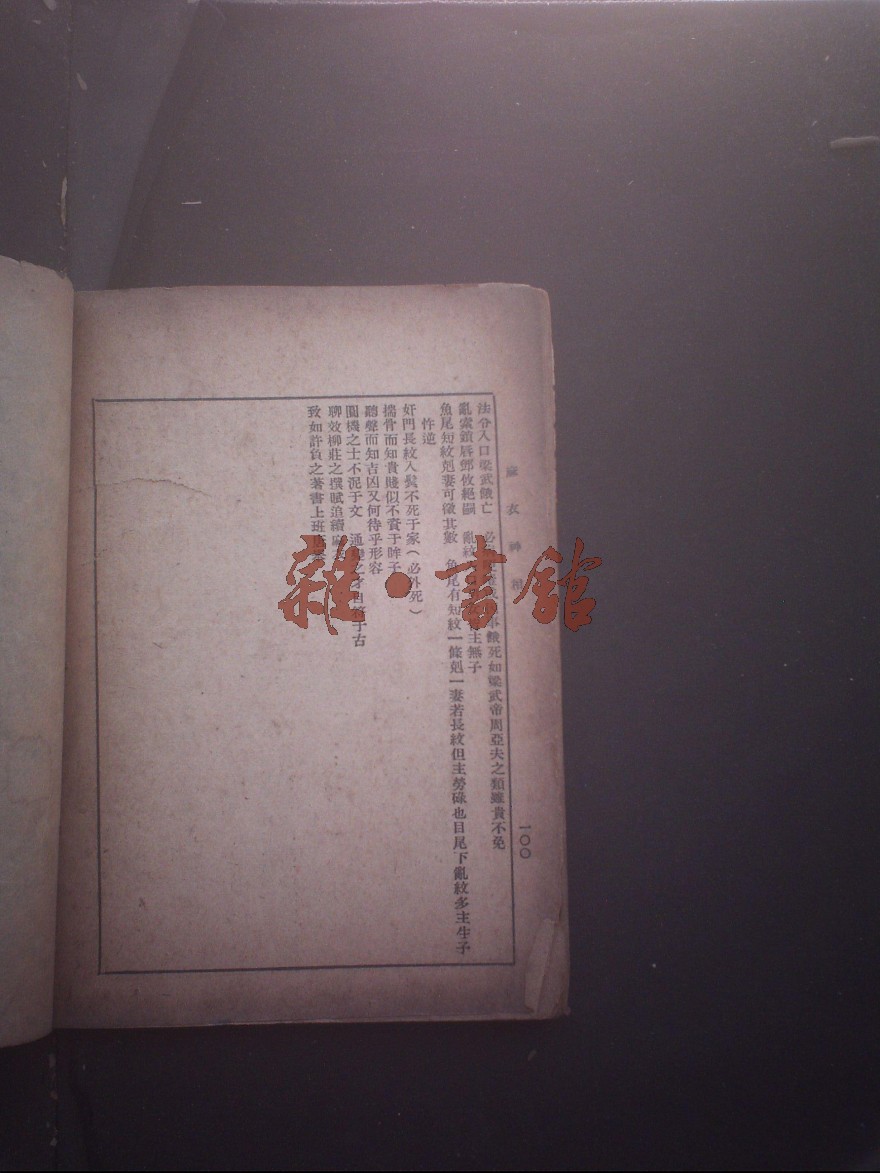 麻衣神相
一〇〇
法令入口梁武餓亡　必餓死如梁武帝周亞夫之類雖貴不免
亂索鎖唇鄧攸絕嗣　亂紋主無子
魚尾短紋剋妻可徵其數　魚尾有短紋一條剋一妻若長紋但主勞碌也目尾下亂紋多主生子
忤逆
奸門長紋入鬓不死于家（必外死）
揣骨而知貴賤似不賚于眸子
聽聲而知吉凶又何待乎形容
圓機之士不泥于文　通變之才于古
聊效柳莊之撰賦追續
致如許負之著書上班
雜·書館